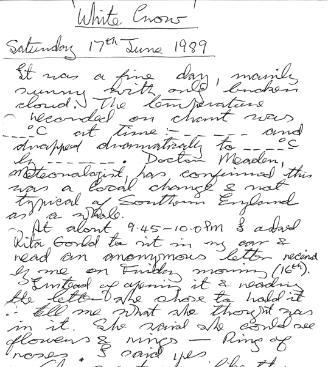 'White Crow'
Saturday 17th June 1989
It was a fine day, mainly
sunny with only broken
cloud. The temperature
recorded on chart was
____°C at time :- ____ and
dropped dramatically to ____°C
by ____. Doctor Meaden,
meteorologist, has confirmed this
was a local change & not
typical of Southern England
as a whole.
At about 9.45-10.0PM I asked
Rita Gould to sit in my car &
read an anonymous letter received
by me on Friday morning (16th).
Instead of opening it & reading
the letter she chose to hold it
& tell me what she thought was
in it. She said she could see
flowers & rings — Ring of
roses. I said yes